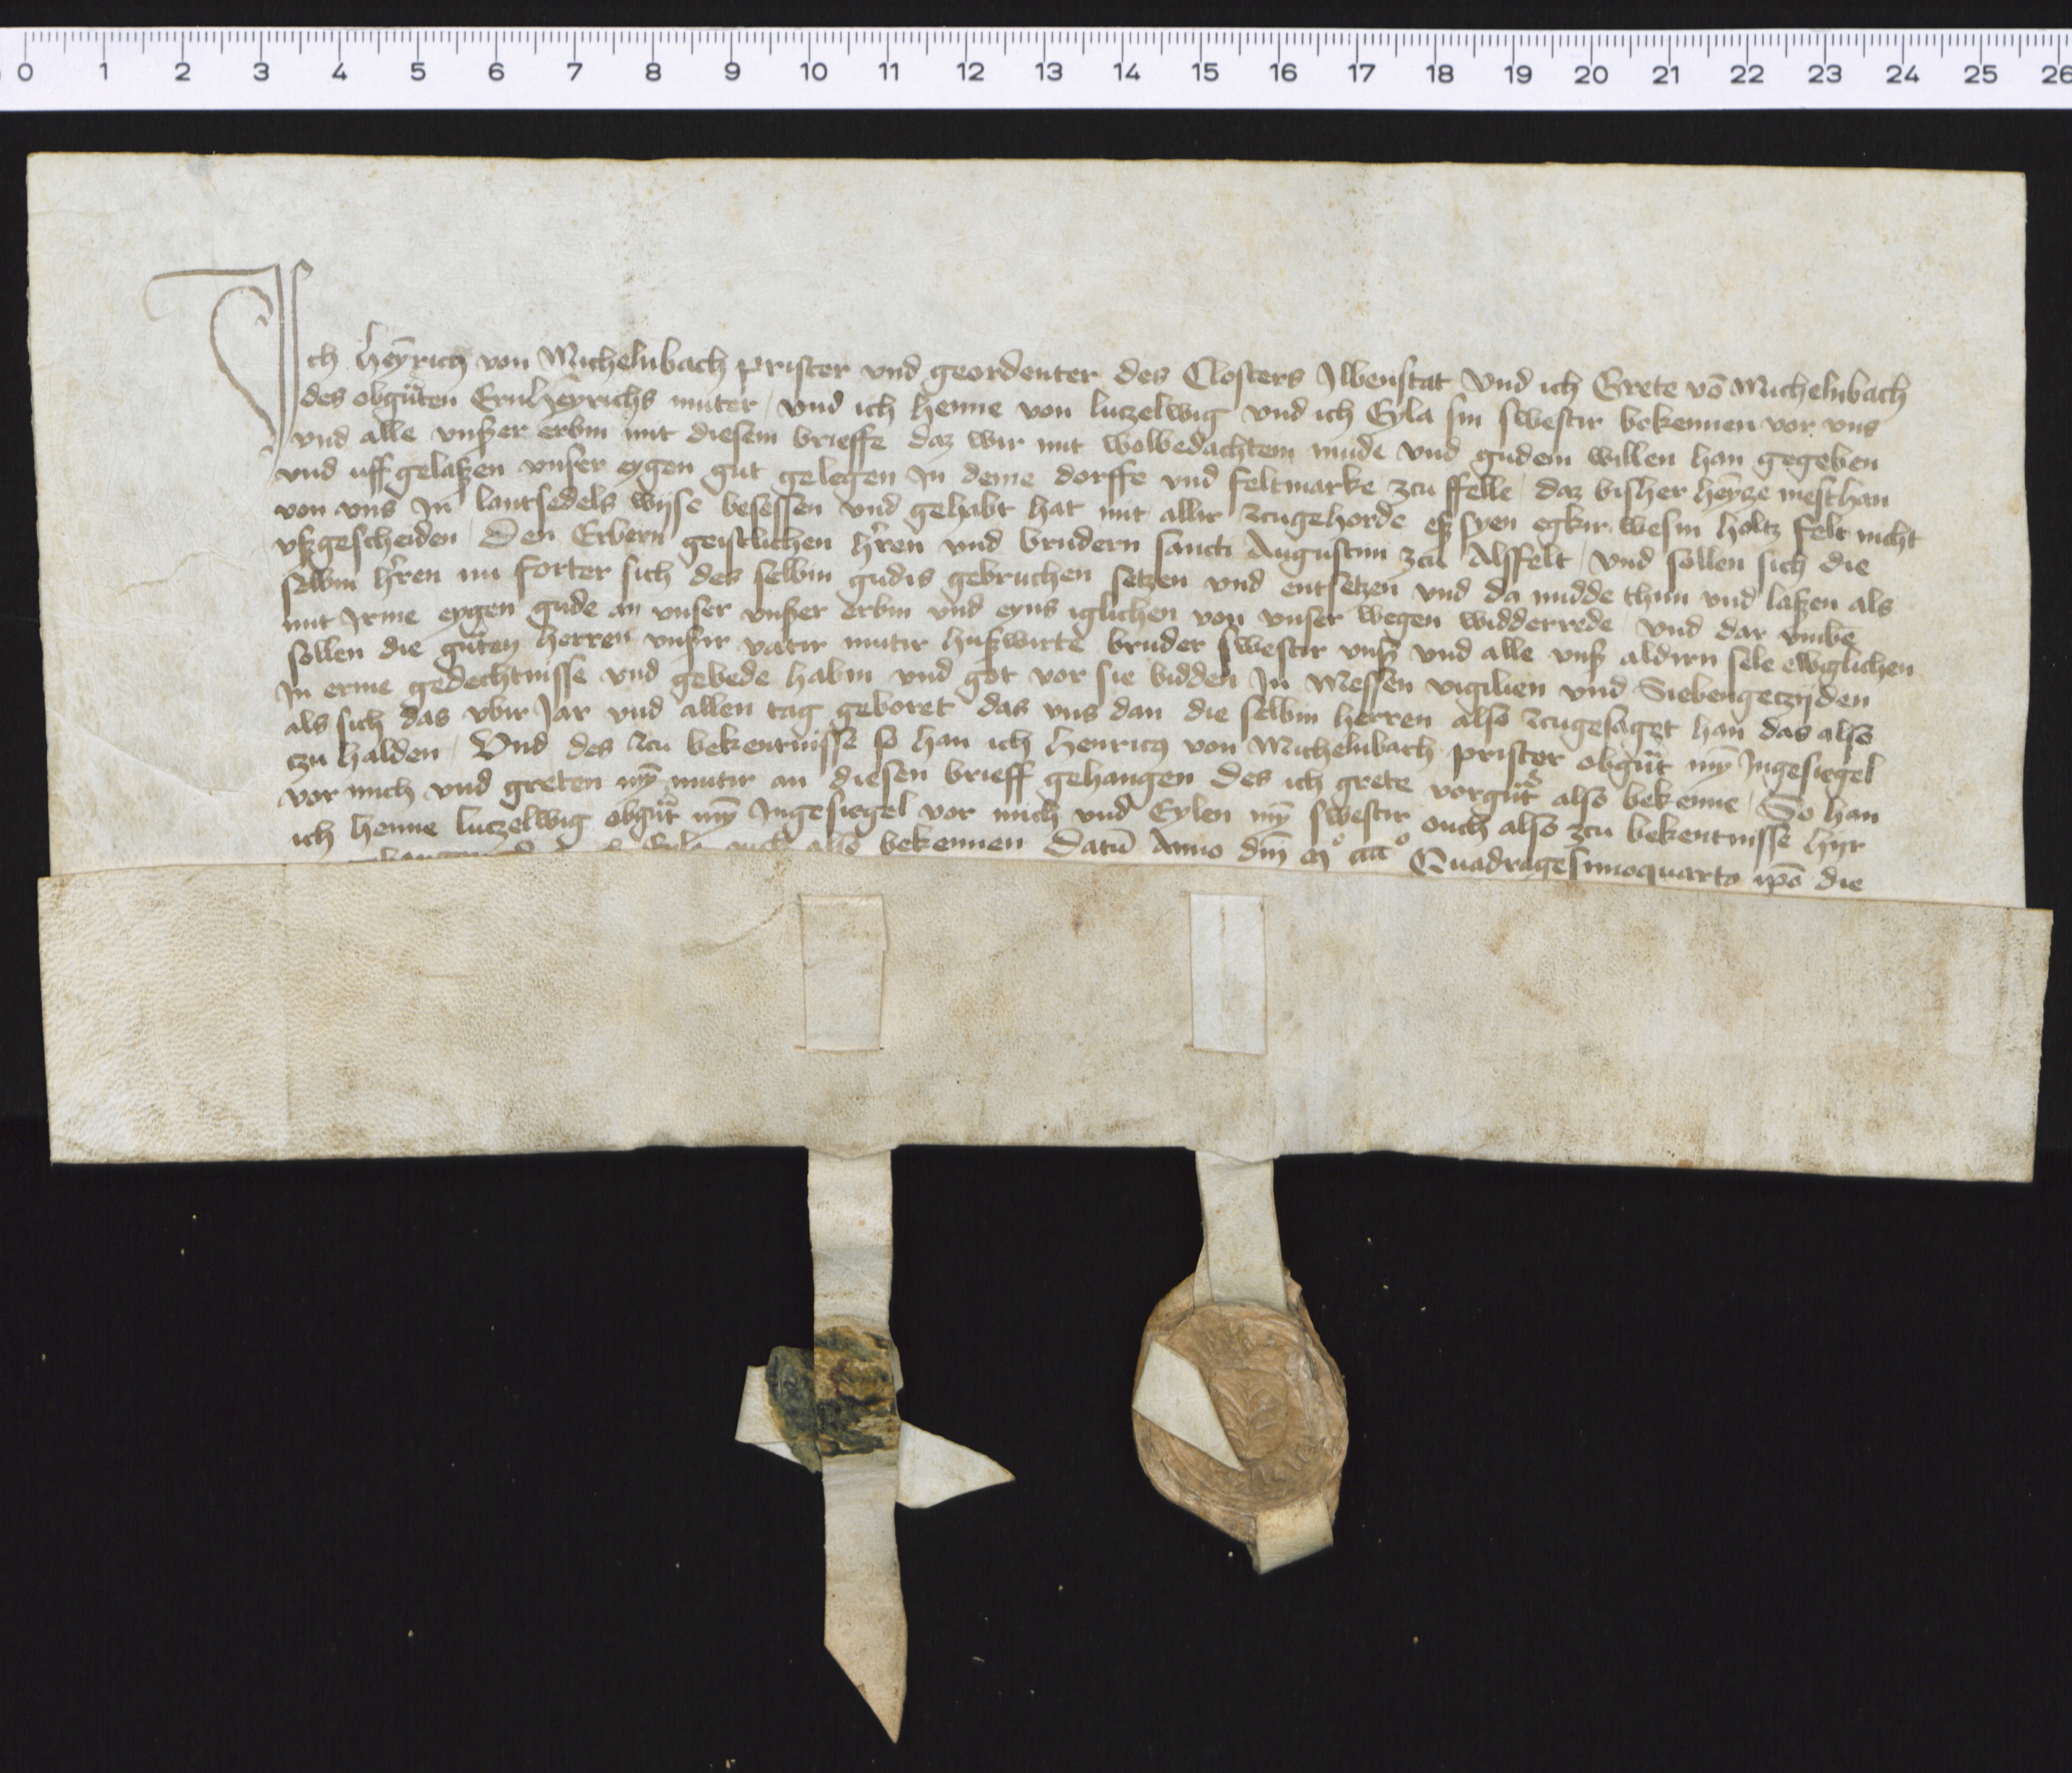 0 1 2 3 4 5 6 7 8 9 10 11 12 13 14 15 16 17 18 19 20 21 22 23 24 25 26
Ich Heỹricꝫ von Michelnbach prister vnd geordenter des Closters Ilbenstat Vnd ich Grete vō Michelnbach
des obgn̄ten Ern Heỹrichs muter / vnd ich Henne von lutzelwig vnd ich Eyla sin swestir bekennen vor vns
vnd alle vnßer erbin mit diesem brieffe daz wir mit wolbedachtem mude vnd gudem willen han gegeben
vnd uff gelaßen vnser eygen gut gelegen In deme dorffe vnd feltmarke zcu ffelle daz bisher heỹcze mesthan
von vns In lantsedels wijse besessen vnd gehabt hat mit allir zcugehorde eß syen egkir wesin holtz felt nicht
vßgescheiden / Den Erbern geistlichen hr̄en vnd brudern sancti Augustini zcu Alsffelt / vnd sollen sich die
selbin hr̄en nu forter sich des selbin gudis gebruchen setzen vnd entsetzen vnd da midde thun vnd laßen als
mit Irme eygen gude an vnser vnßer erbin vnd eyns iglichen von vnser wegen widderrede / vnd dar vmbe
sollen die gn̄ten herren vnßir vatir mutir hußwirte bruder swestir vnß vnd alle vnß aldirn sele ewiglichen
In erme gedechtnisse vnd gebede habin vnd got vor sie bidden In Messen vigilien vnd Siebengeczijden
als sich das vbir Jar vnd allen tag geboret das vns dan die selbin herren also zcugesaget han das also
czu halden / Vnd des zcu bekentnisse so han ich Henricꝫ von Michelnbach prister obgn̄t mȳ Ingesiegel
vor mich vnd greten mȳ mutir an diesen brieff gehangen des ich grete vorgn̄t also bekenne / So han
ich Henne lutzelwig obgn̄t mȳ Ingesiegel vor mich vnd Eylen mȳ swestir ouch also zcu bekentnisse hyr
bekennen Datū Anno dn̄i mº ccccº Quadragesimoquarto ip̄o die